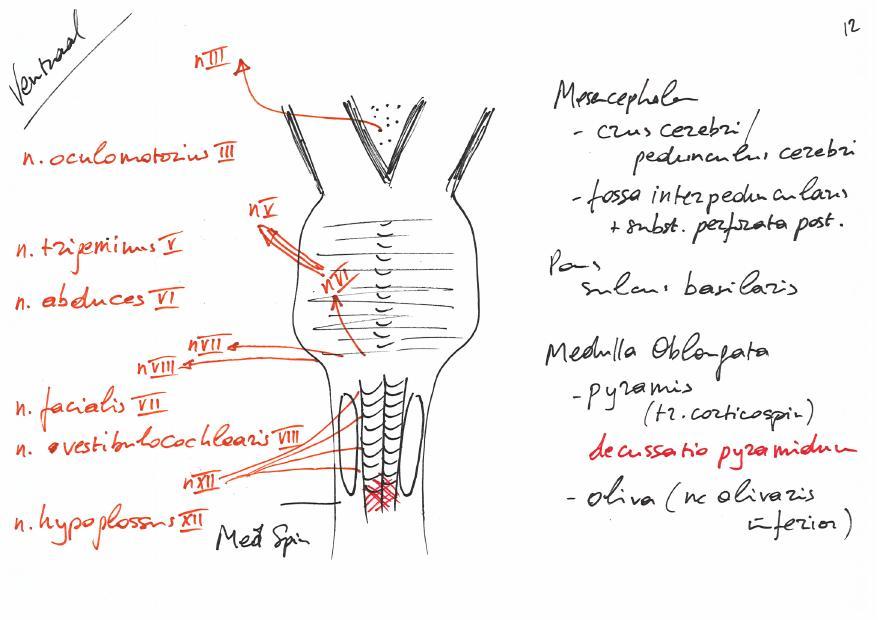 12
Ventraal
n III
n. oculomotorius III
n V
n. trigeminus V
n VI
n. abduces VI
n VII
n VIII
n. facialis VII
n. vestibulocochlearis VIII
n XII
n. hypoglossus XII
Med Spin
Mesencephalon
- crus cerebri/
pedunculus cerebri
- fossa interpeduncularis
+ subst. perforata post.
Pons
sulcus basilaris
Medulla Oblongata
- pyramis
(tr. corticospin)
decussatio pyramidum
- oliva (nc olivaris
inferior)